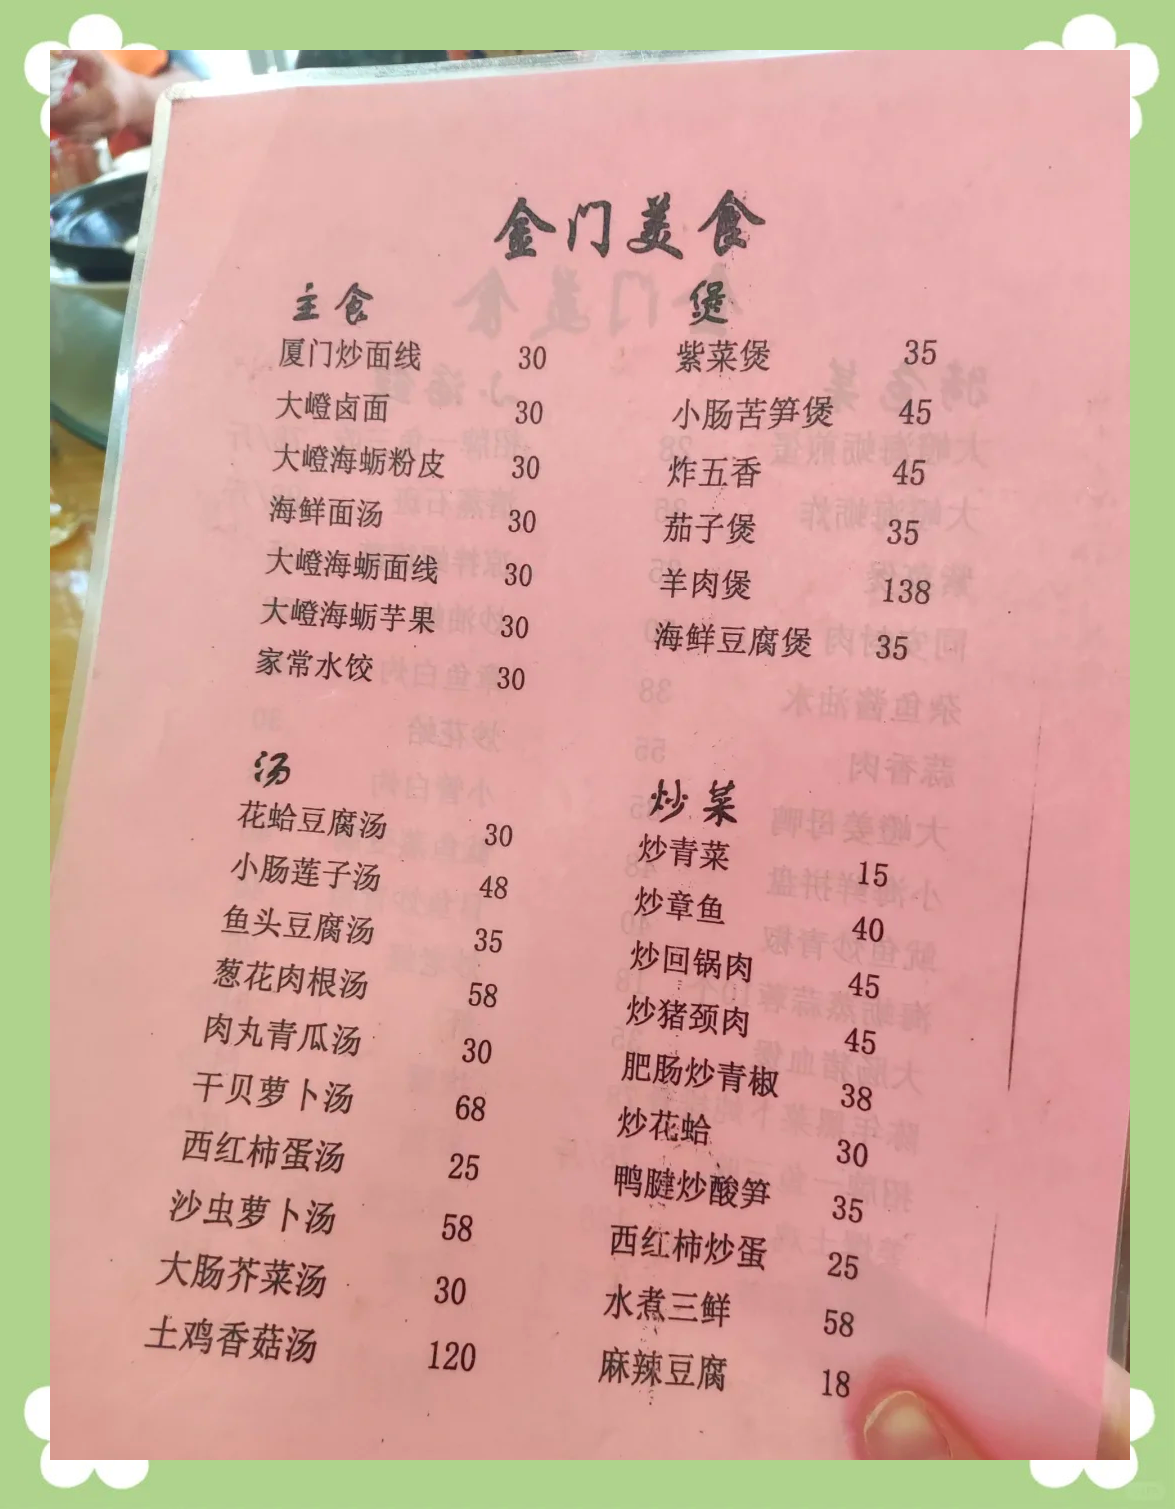 金门美食
主食
厦门炒面线 30
大嶝卤面 30
大嶝海蛎粉皮 30
海鲜面汤 30
大嶝海蛎面线 30
大嶝海蛎芋果 30
家常水饺 30
煲
紫菜煲 35
小肠苦笋煲 45
炸五香 45
茄子煲 35
羊肉煲 138
海鲜豆腐煲 35
汤
花蛤豆腐汤 30
小肠莲子汤 48
鱼头豆腐汤 35
葱花肉根汤 58
肉丸青瓜汤 30
干贝萝卜汤 68
西红柿蛋汤 25
沙虫萝卜汤 58
大肠芥菜汤 30
土鸡香菇汤 120
炒菜
炒青菜 15
炒章鱼 40
炒回锅肉 45
炒猪颈肉 45
肥肠炒青椒 38
炒花蛤 30
鸭腱炒酸笋 35
西红柿炒蛋 25
水煮三鲜 58
麻辣豆腐 18